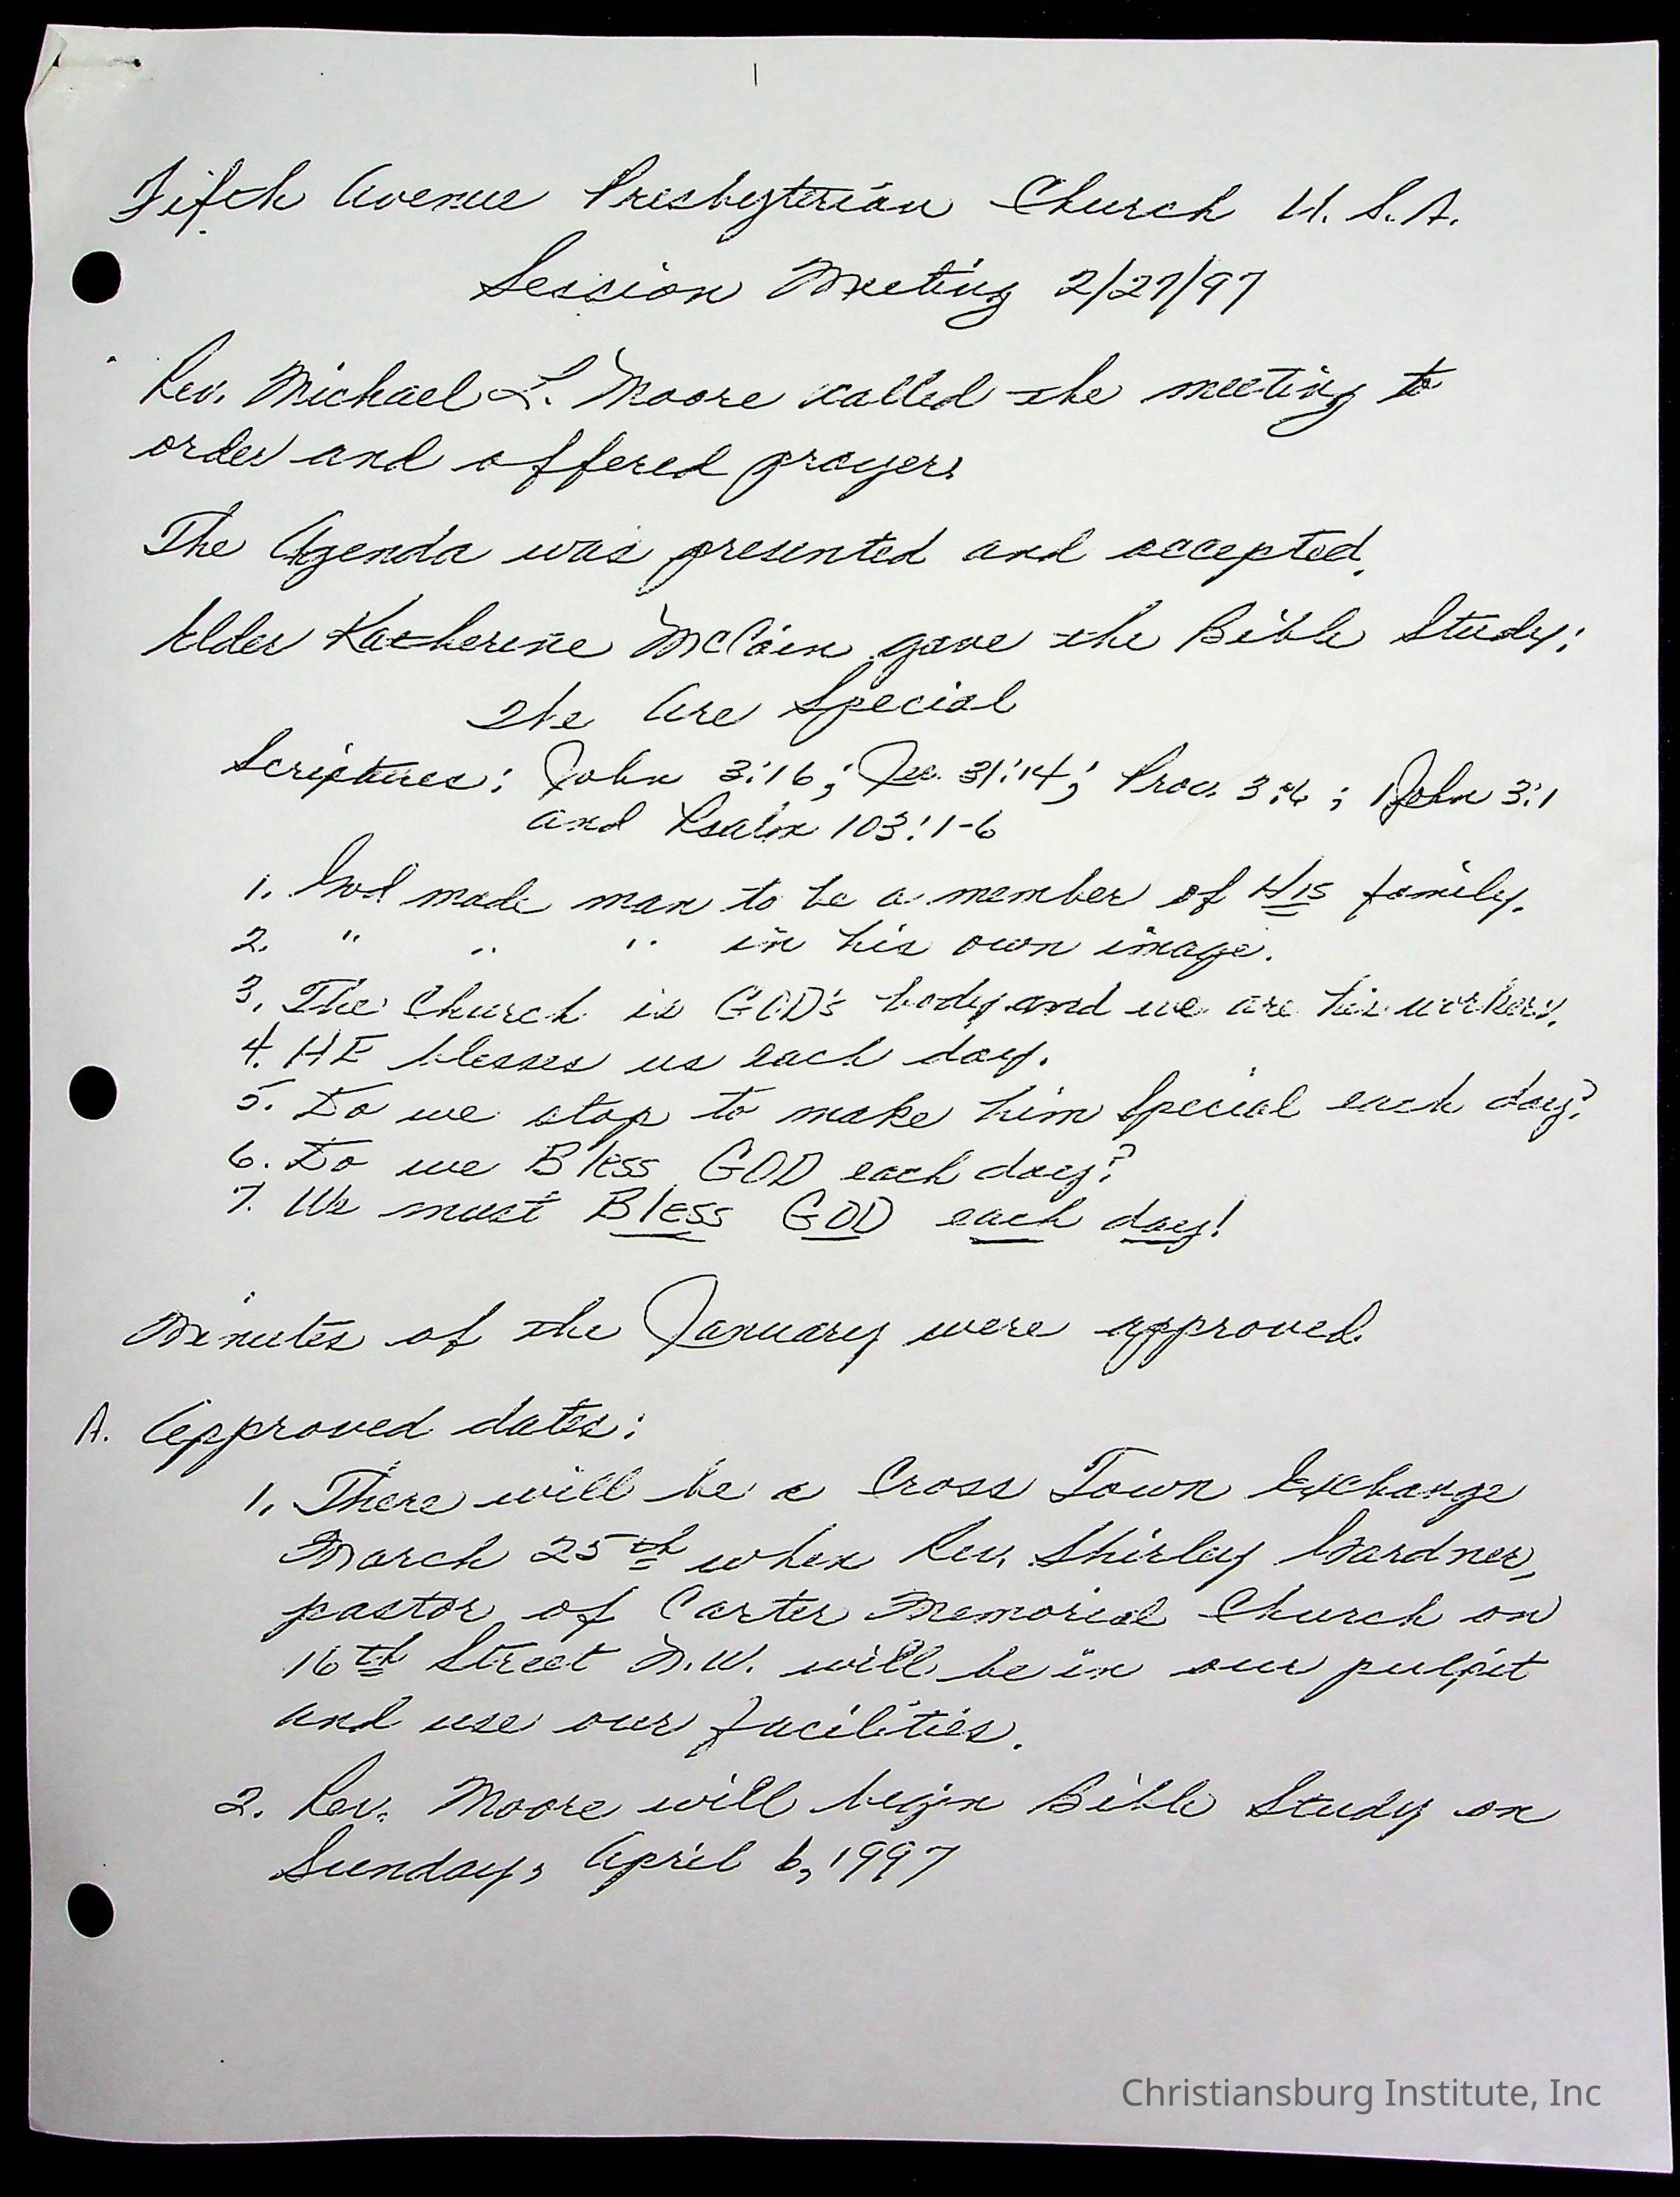 Fifth Avenue Presbyterian Church U. S. A.
Session Meeting 2/27/97
Rev. Michael L. Moore called the meeting to
order and offered prayer.
The Agenda was presented and accepted.
Elder Katherine McCain gave the Bible Study:
We Are Special
Scriptures: John 3:16; Jer. 31:14; Prov. 3:6; 1 John 3:1
and Psalm 103:1-6
1. God made man to be a member of HIS family.
2. " " " in his own image.
3. The Church is GOD's body and we are his workers.
4. HE blesses us each day.
5. Do we stop to make him special each day?
6. Do we Bless GOD each day?
7. We must Bless GOD each day!
Minutes of the January were approved.
A. Approved dates:
1. There will be a Cross Town Exchange
March 25th when Rev. Shirley Gardner,
pastor of Carter Memorial Church on
16th Street N.W. will be in our pulpit
and use our facilities.
2. Rev. Moore will begin Bible Study on
Sunday, April 6, 1997
Christiansburg Institute, Inc